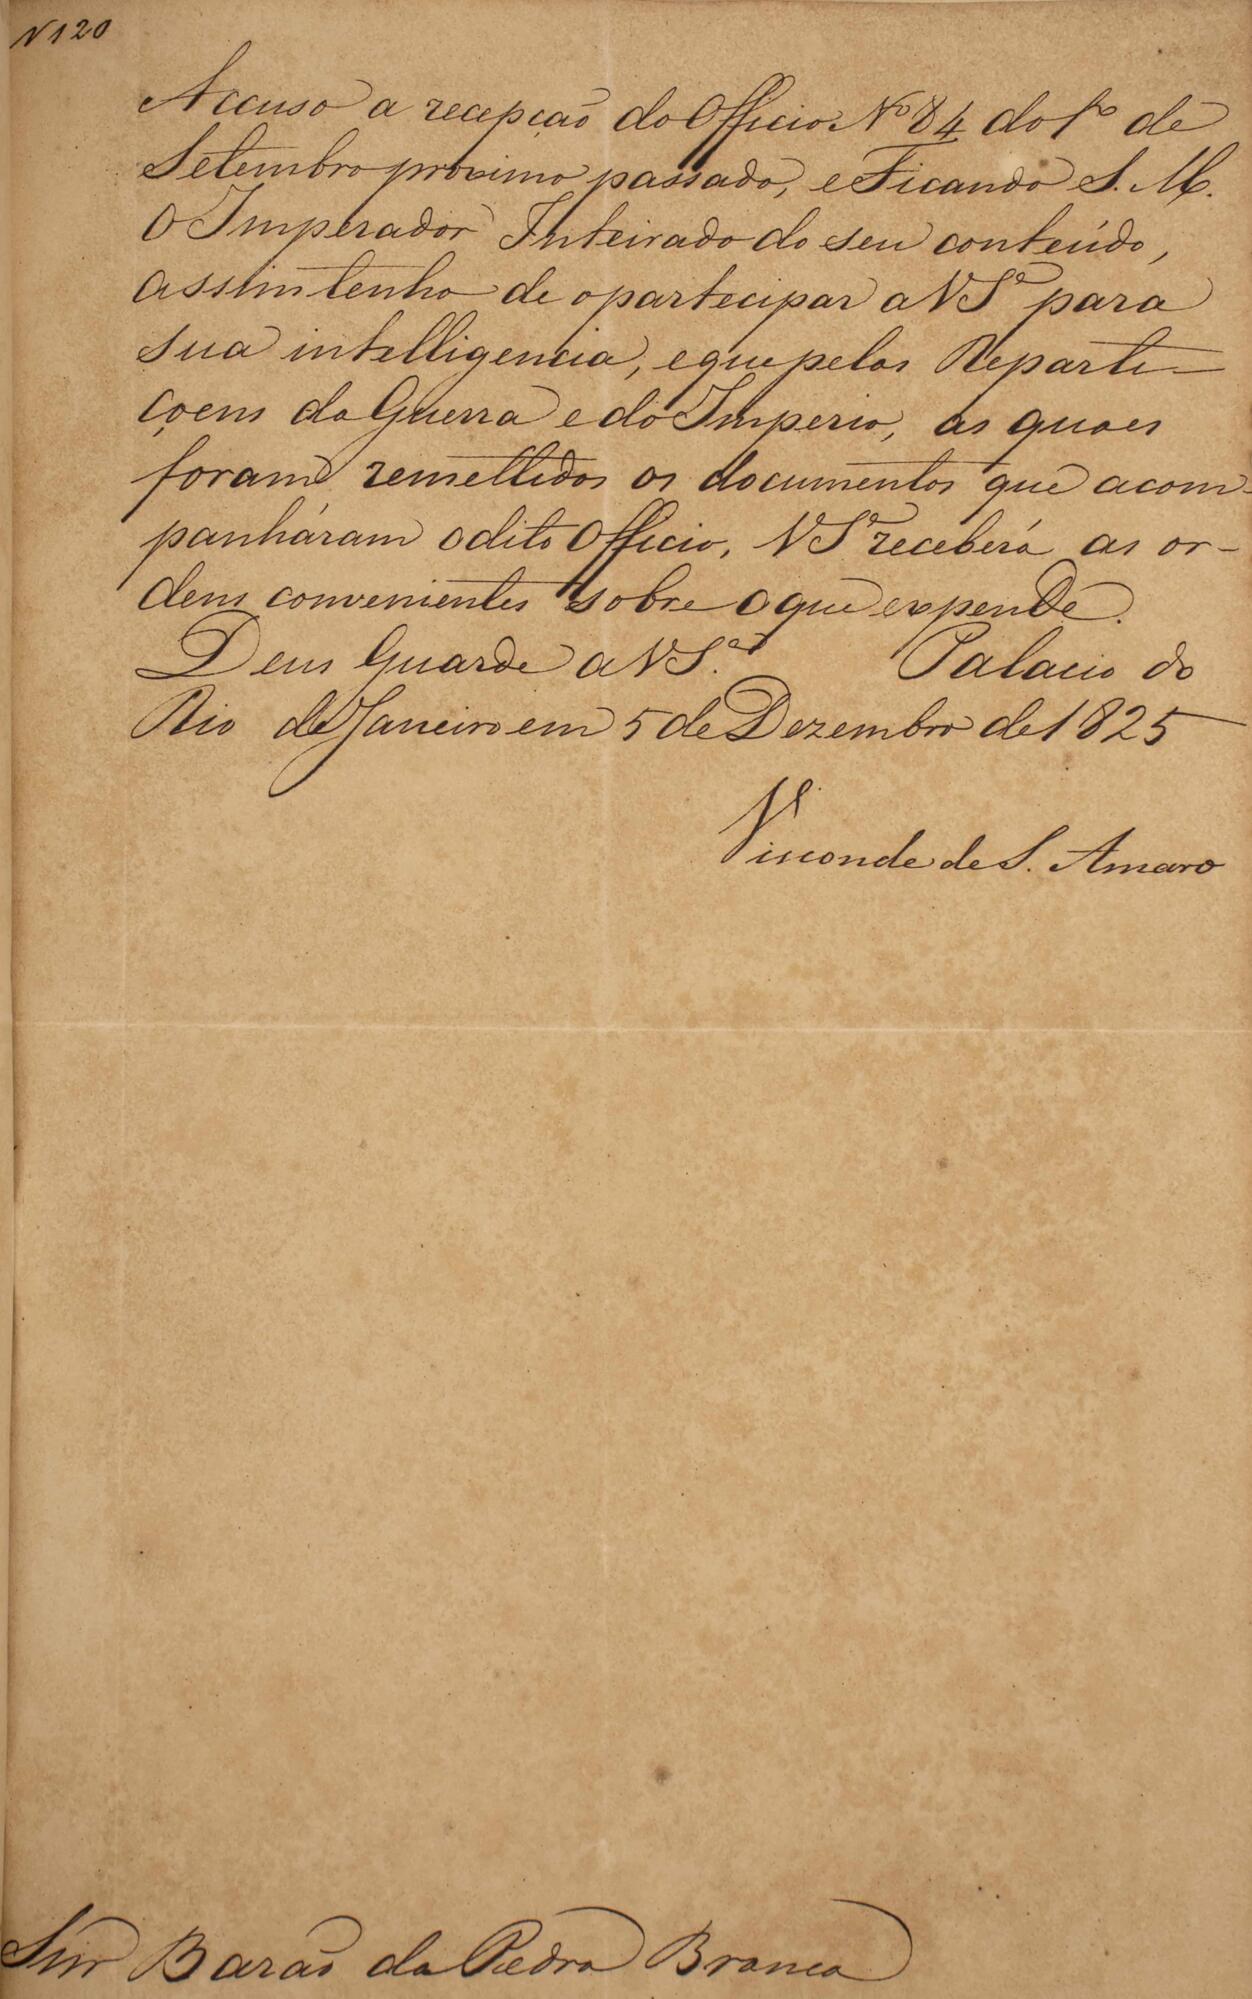 N 120
Accuso a recepção do Officio Nº 84 do 1º de
Setembro proximo passado, e Ficando S. M.
O Imperador Inteirado do seu conteúdo,
assim tenho de o partecipar a VSª para
sua intelligencia, e que pelas Reparti-
çoens da Guerra e do Imperio, as quaes
foram remettidos os documentos que acom-
panháram o dito Officio, VSª receberá as or-
dens convenientes sobre o que expende.
Deus Guarde a VSª. Palacio do
Rio de Janeiro em 5 de Dezembro de 1825
Visconde de S. Amaro
Snr Barão da Pedra Branca